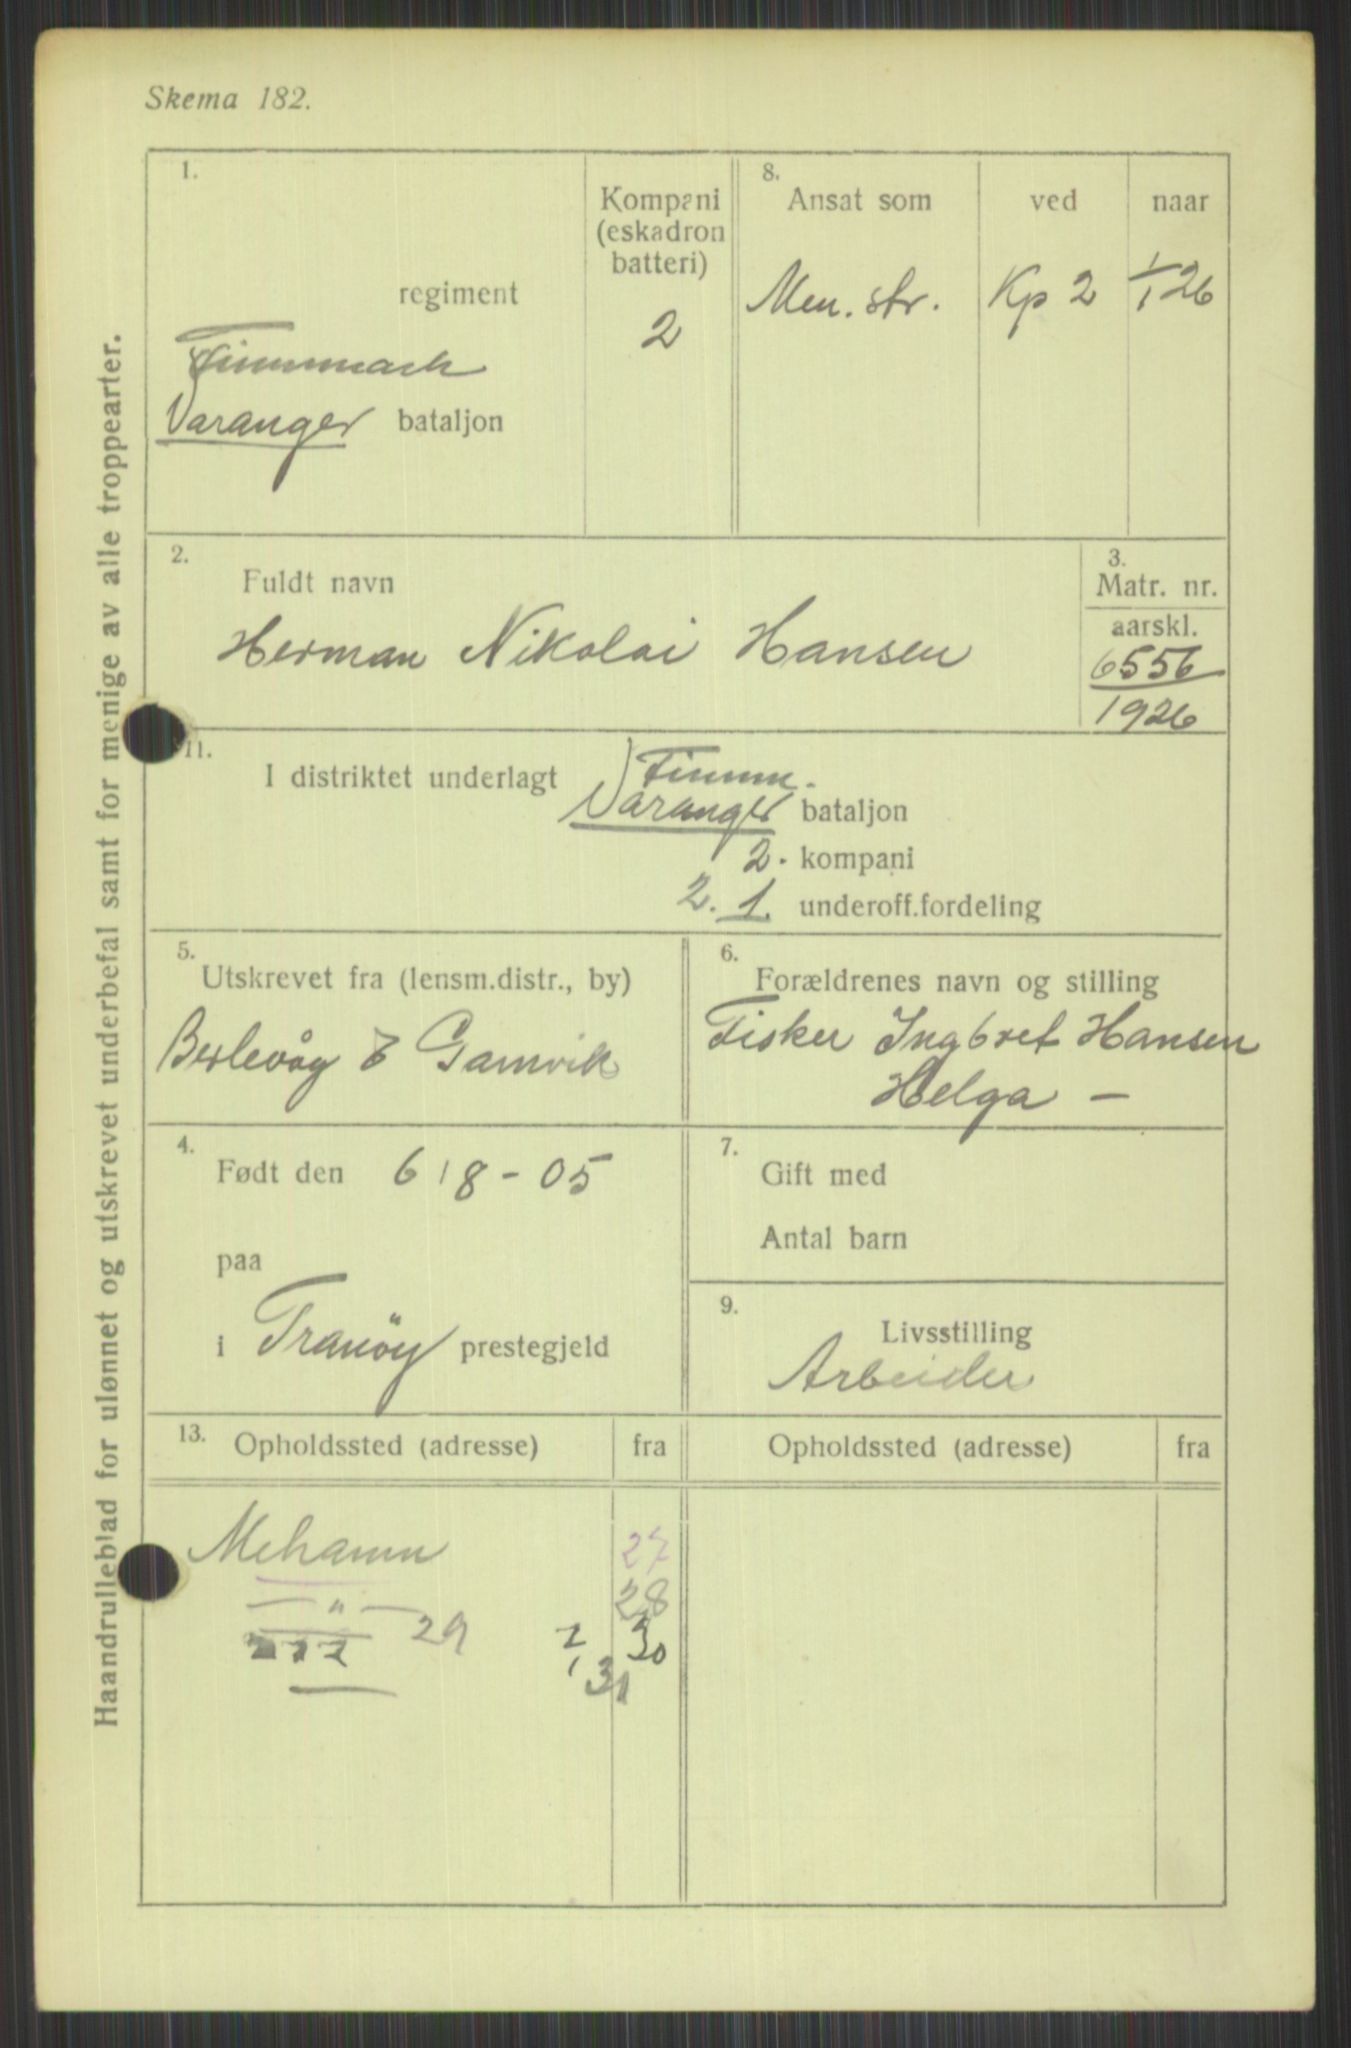 Skema 182.
Haandrulleblad for ulønnet og utskrevet underbefal samt for menige av alle troppearter.
1.
regiment
Finnmark
Varanger bataljon
Kompani
(eskadron
batteri)
2
8.
Ansat som ved naar
Men. str. Kp 2 1/1 26
2.
Fuldt navn
Herman Nikolai Hansen
3.
Matr. nr.
aarskl.
6556
1926
11.
I distriktet underlagt Finnm.
Varanger bataljon
2. kompani
2. 1. underoff.fordeling
5.
Utskrevet fra (lensm.distr., by)
Berlevåg & Gamvik
6.
Forældrenes navn og stilling
Fisker Ingbret Hansen
Helga —
4.
Født den 6/8-05
paa
i Tranöy prestegjeld
7.
Gift med
Antal barn
9.
Livsstilling
Arbeider
13. Opholdssted (adresse) fra Opholdssted (adresse) fra
Mehamn 27
—"— 28
29 30
31